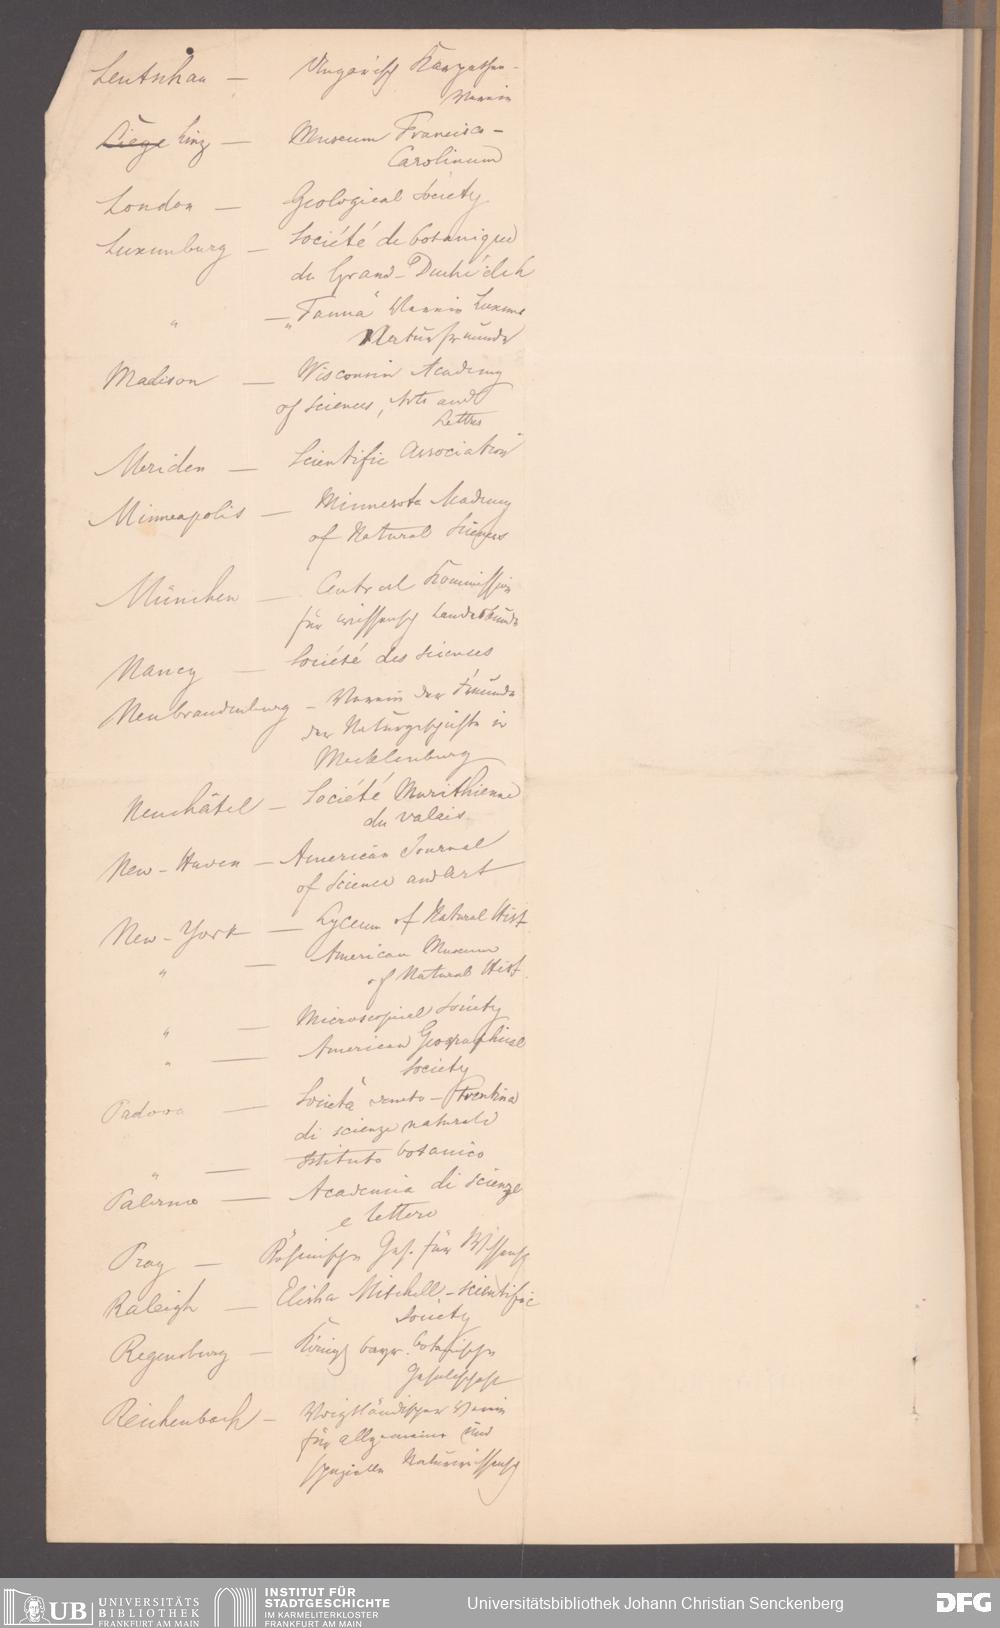 Leutschau — Ungarisch Karpathen-
Verein
Liège Linz — Museum Francisco-
Carolinum
London — Geological Society
Luxemburg — Société de botanique
du Grand-Duché de L
" — "Fauna" Verein Luxemb
Naturfreunde
Madison — Wisconsin Academy
of Sciences, Arts and
Lettres
Meriden — Scientific Association
Minneapolis — Minnesota Academy
of Natural Sciences
München — Central Kommission
für wissensch Landeskunde
Nancy — Société des Sciences
Neubrandenburg — Verein der Freunde
der Naturgeschichte in
Mecklenburg
Neuchâtel — Société Murithienne
du Valais
New-Haven — American Journal
of Science and Art
New-York — Lyceum of Natural Hist
" — American Museum
of Natural Hist.
" — Microscopical Society
" — American Geographical
Society
Padova — Società veneto-trentina
di scienze naturali
" — Istituto botanico
Palermo — Academia di scienze
e lettere
Prag — Böhmische Ges. für Wissensch
Raleigh — Elisha Mitchell-scientific
Society
Regensburg — Königl bayr. botanische
Gesellschaft
Reichenbach — Voigtländischer Verein
für allgemeine und
spezielle Naturwissensch
UB UNIVERSITÄTS
BIBLIOTHEK
FRANKFURT AM MAIN
INSTITUT FÜR
STADTGESCHICHTE
IM KARMELITERKLOSTER
FRANKFURT AM MAIN
Universitätsbibliothek Johann Christian Senckenberg
DFG